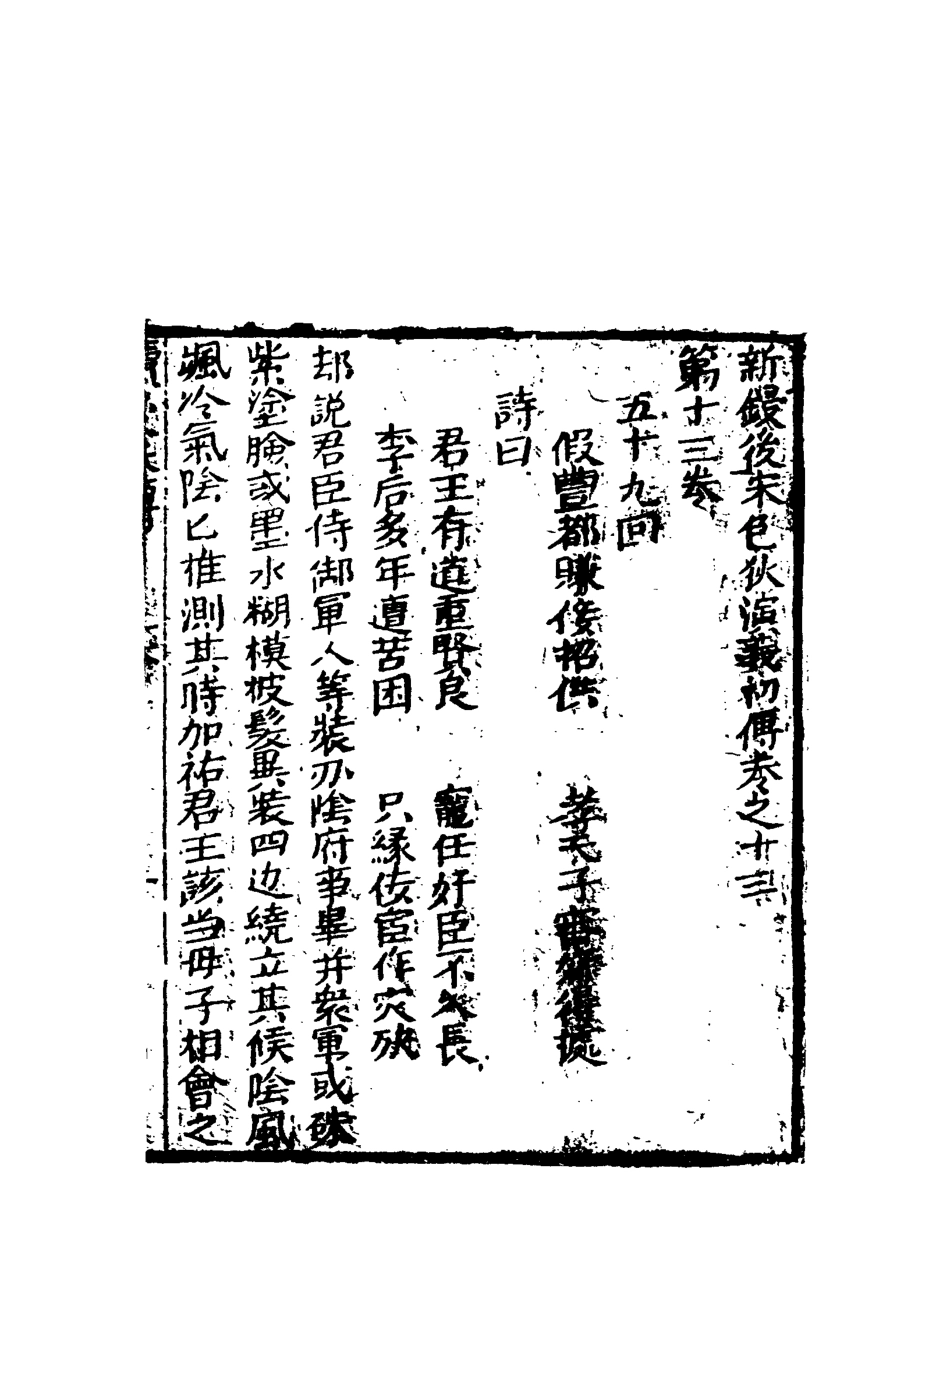 新鐫後宋包狄演義初傳卷之十三
第十三卷
五十九回
假豐都賺佞招供　孝天子審郭得據
詩曰
君王有道重賢良　寵任奸臣不久長
李后多年遭苦困　只縁佞宦作灾殃
却説君臣侍御軍人等裝办陰府事畢并衆軍或硃
柴塗臉或墨水糊模披髮異裝四边繞立其候陰風
颯冷氣陰匕惟測其時加祐君王該当母子相會之